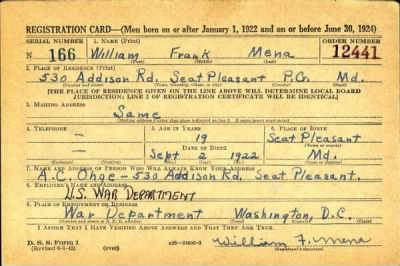 REGISTRATION CARD—(Men born on or after January 1, 1922 and on or before June 30, 1924)
SERIAL NUMBER 1. NAME (Print) ORDER NUMBER
N 166 William Frank Mena 12441
(First) (Middle) (Last)
2. PLACE OF RESIDENCE (Print)
530 Addison Rd. Seat Pleasant P.G. Md.
[THE PLACE OF RESIDENCE GIVEN ON THE LINE ABOVE WILL DETERMINE LOCAL BOARD
JURISDICTION; LINE 2 OF REGISTRATION CERTIFICATE WILL BE IDENTICAL]
3. MAILING ADDRESS
Same
[Mailing address if other than place indicated on line 2. If same insert word same]
4. TELEPHONE 5. AGE IN YEARS 6. PLACE OF BIRTH
— 19 Seat Pleasant
DATE OF BIRTH (Town or county)
— Sept 2 1922 Md.
(Exchange) (Number) (Mo.) (Day) (Yr.) (State or country)
7. NAME AND ADDRESS OF PERSON WHO WILL ALWAYS KNOW YOUR ADDRESS
A.C. - 530 Addison Rd, Seat Pleasant.
8. EMPLOYER'S NAME AND ADDRESS
U.S. WAR DEPARTMENT
9. PLACE OF EMPLOYMENT OR BUSINESS
War Department Washington, D.C.
I AFFIRM THAT I HAVE VERIFIED ABOVE ANSWERS AND THAT THEY ARE TRUE.
D. S. S. Form 1
(Revised 6-1-42) (over) William F. Mena
(Registrant's signature)